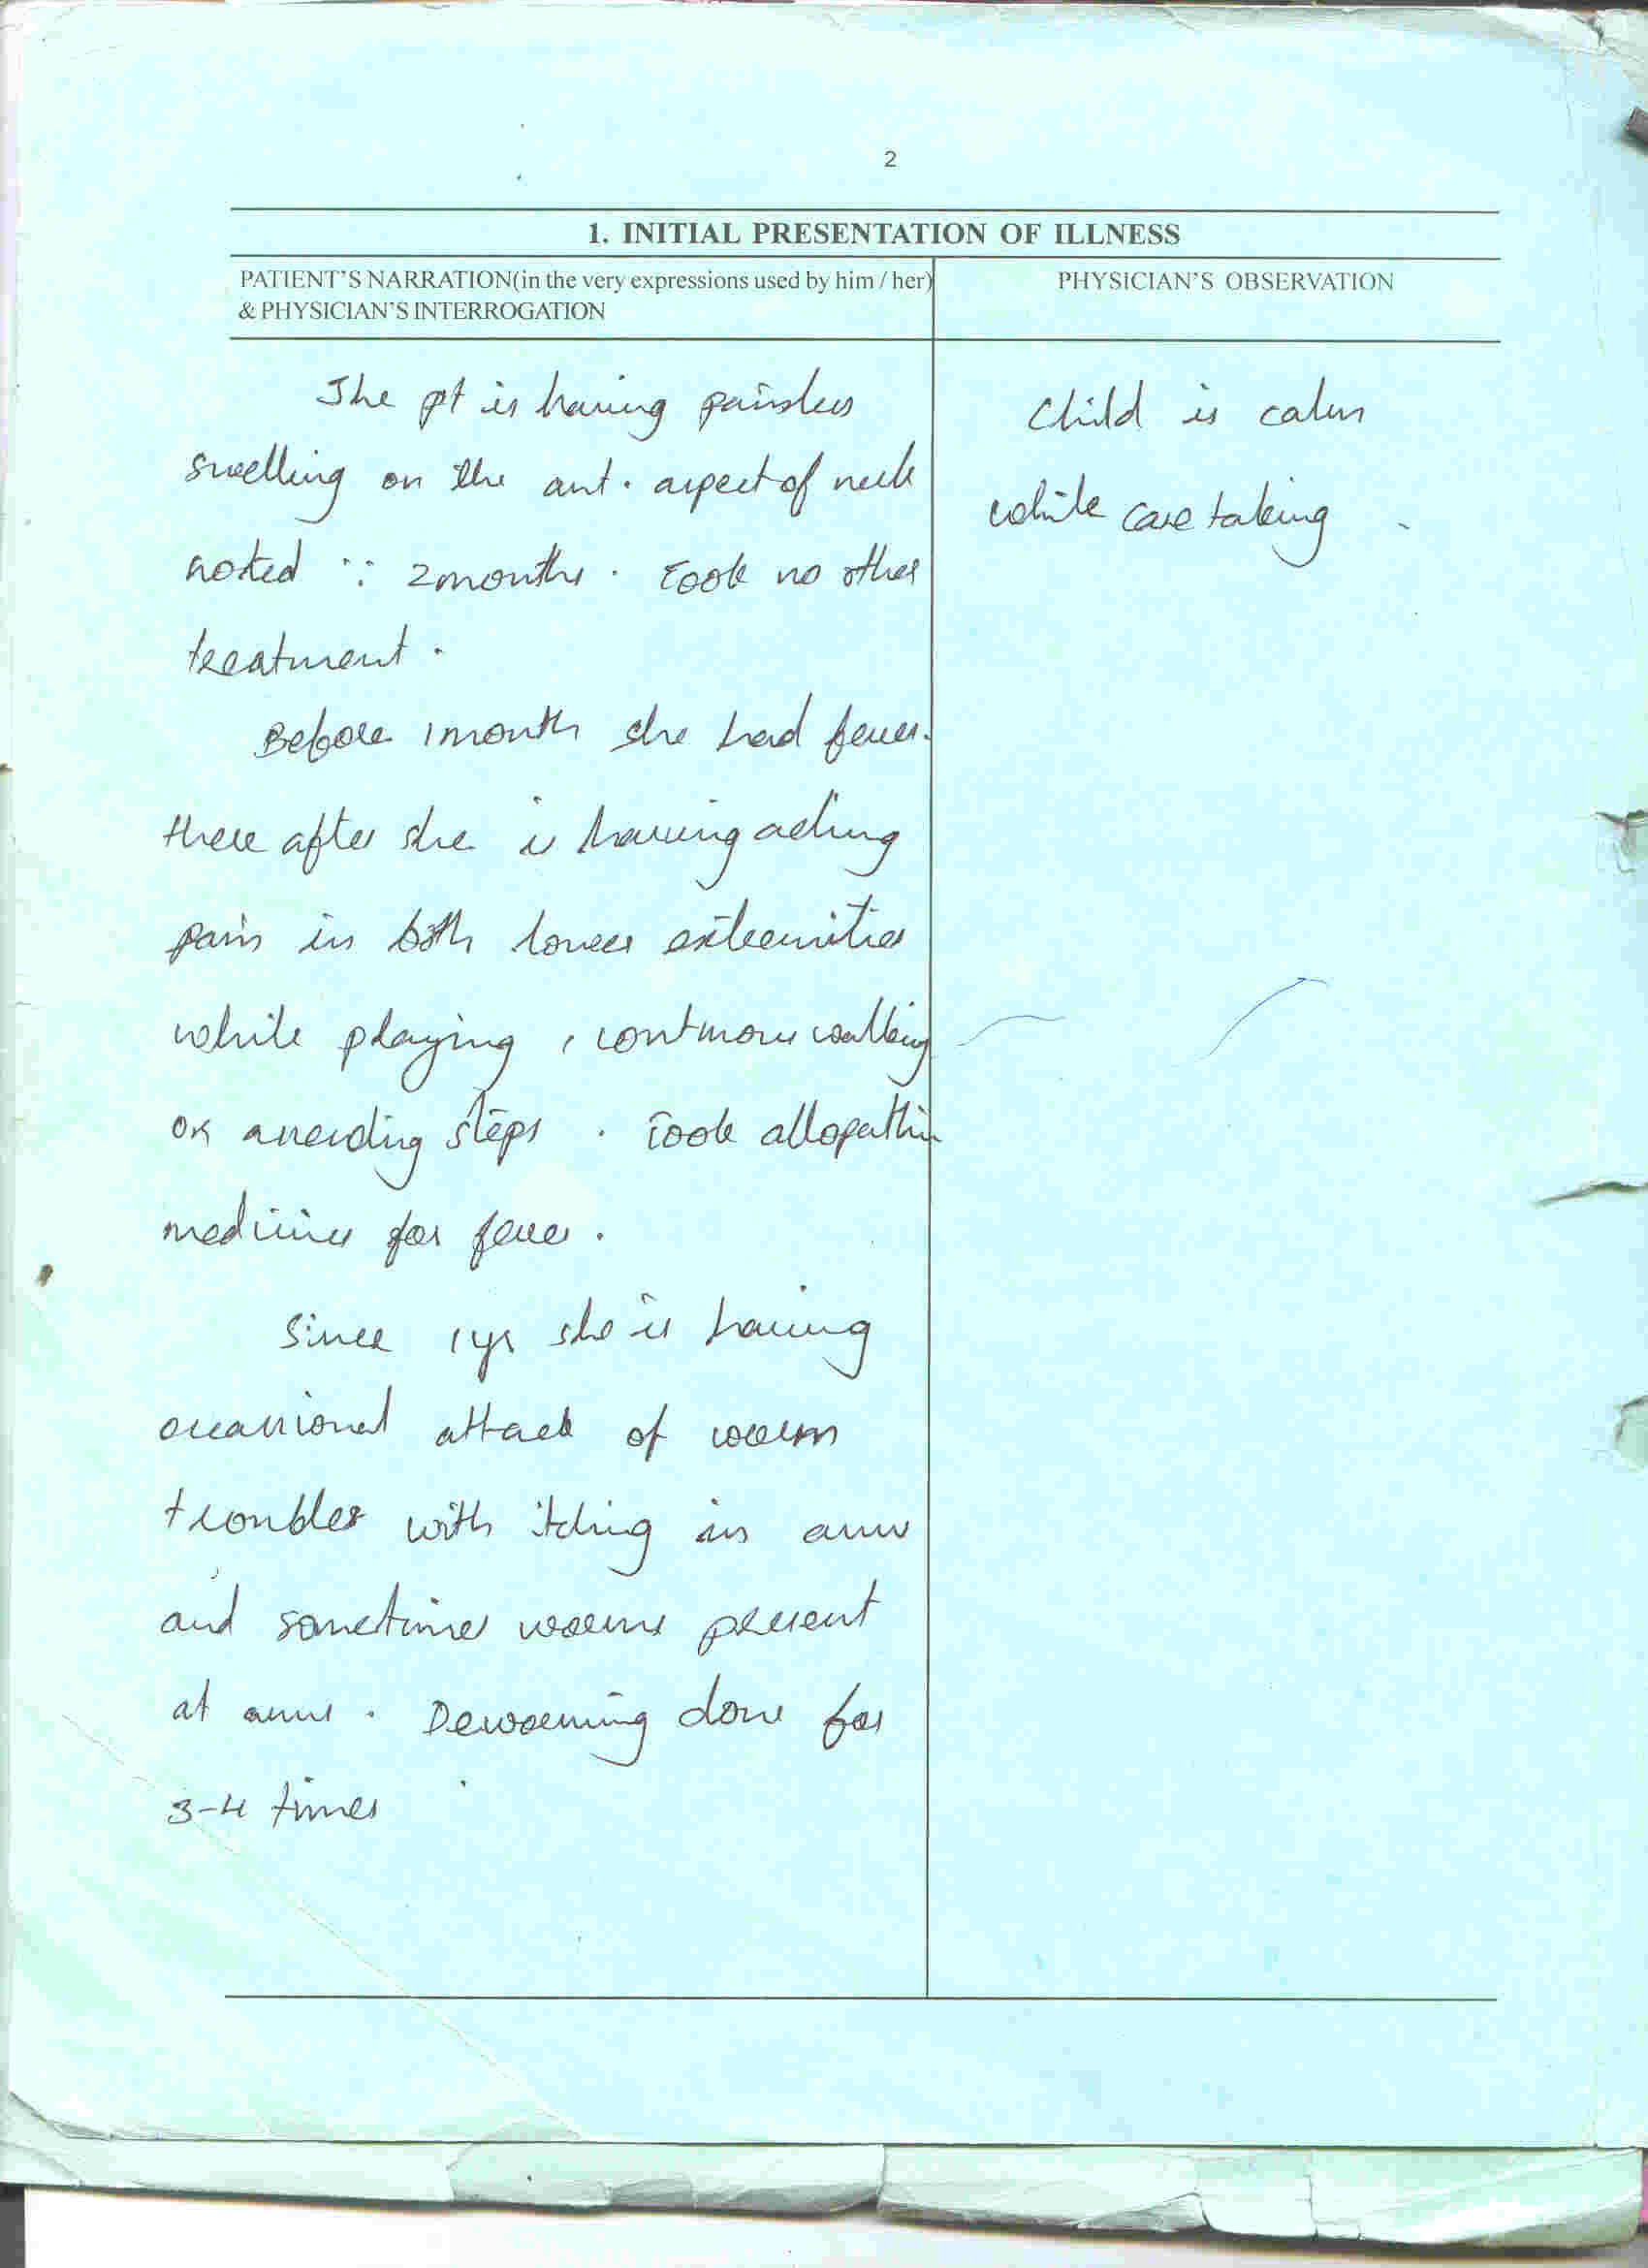 2
1. INITIAL PRESENTATION OF ILLNESS
PATIENT'S NARRATION(in the very expressions used by him / her)
& PHYSICIAN'S INTERROGATION
PHYSICIAN'S OBSERVATION
The pt is having painless
swelling on the ant. aspect of neck
noted ∵ 2months. Took no other
treatment.
Before 1month she had fever.
there after she is having aching
pain in both lower extremities
while playing, continous walking
or ascending steps. Took allopathic
medicines for fever.
Since 1yr she is having
occassional attack of worm
troubles with itching in anus
and sometimes worms present
at anus. Deworming done for
3-4 times
Child is calm
while case taking